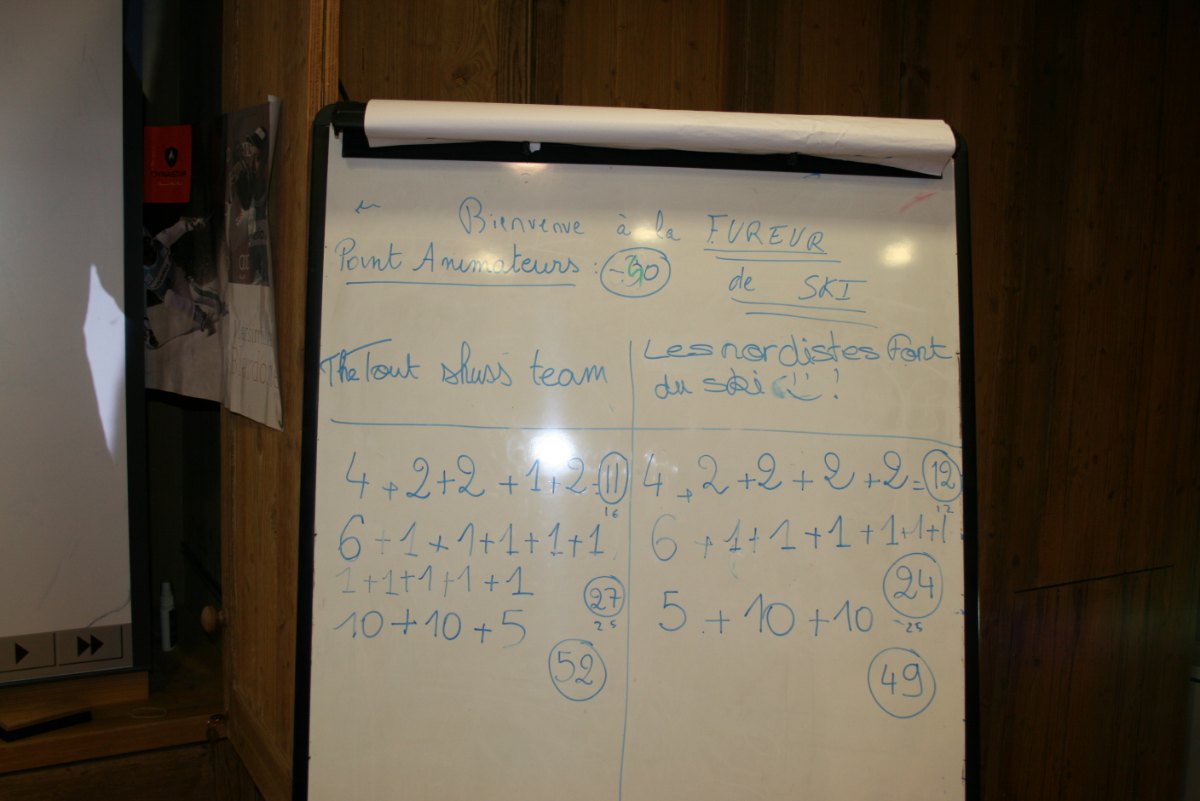 Bienvenue à la FUREUR
de SKI
Point Animateurs : -30
The Tout shuss team
4 + 2 + 2 + 1 + 2 = 11
16
6 + 1 + 1 + 1 + 1 + 1
1 + 1 + 1 + 1 + 1
27
25
10 + 10 + 5
52
Les nordistes font
du ski !
4 + 2 + 2 + 2 + 2 = 12
12
6 + 1 + 1 + 1 + 1 + 1 + 1
24
25
5 + 10 + 10
49
DYNASTAR